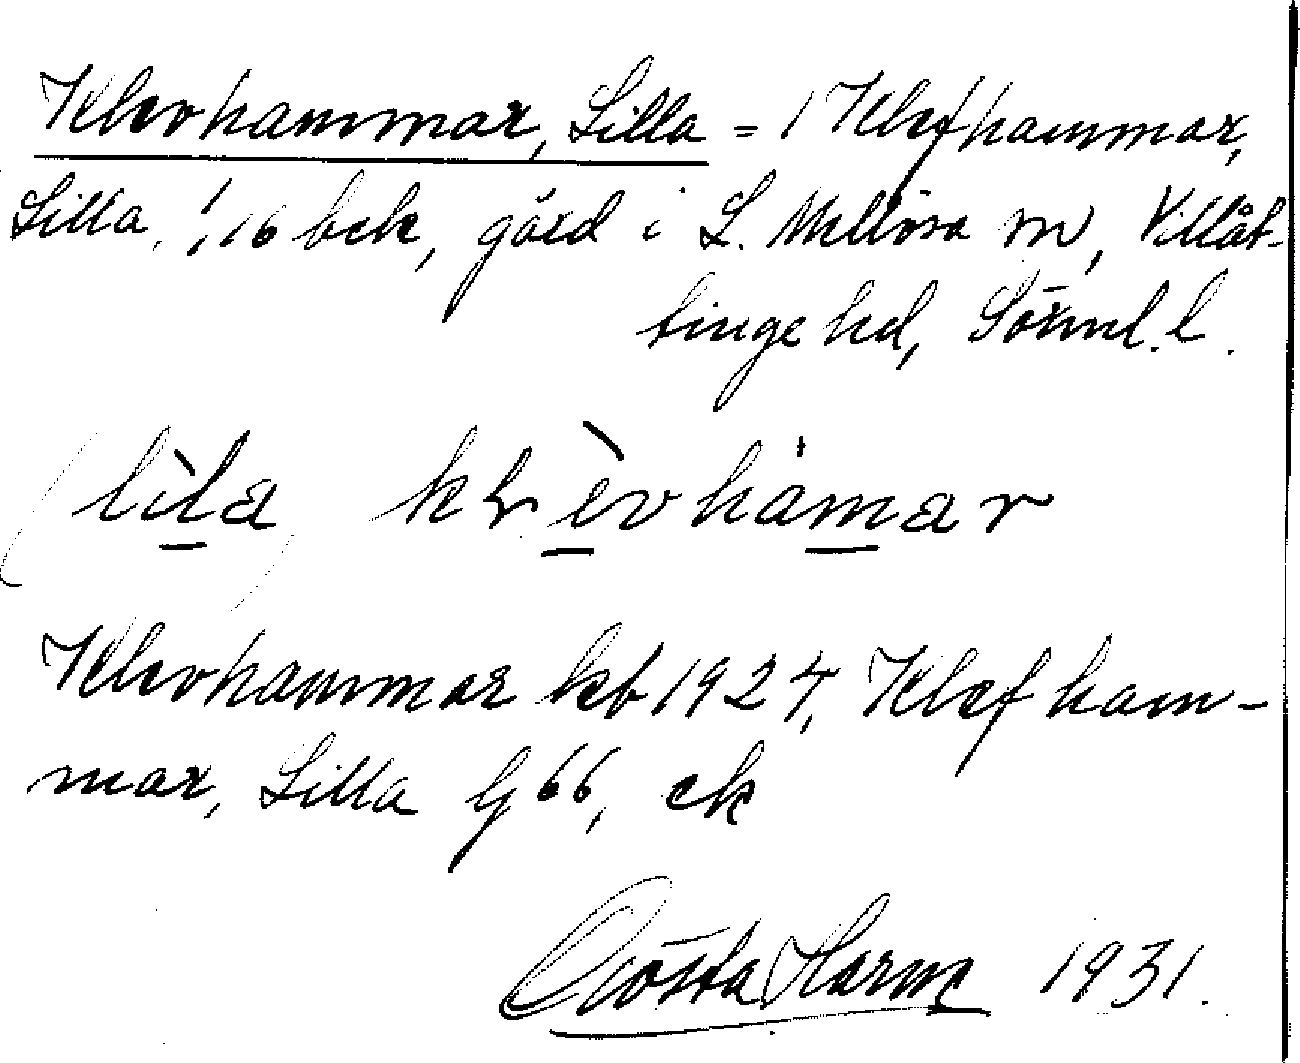 Klevhammar, Lilla = 1 Klefhammar,
Lilla, 1/16 bek, gård i L. Mellösa sn, Villåt-
tinge hd, Sörml. l.
(lìla) klèvhámar
Klevhammar kb 1924, Klefham-
mar, Lilla G 66, ek
Gösta Harm 1931.